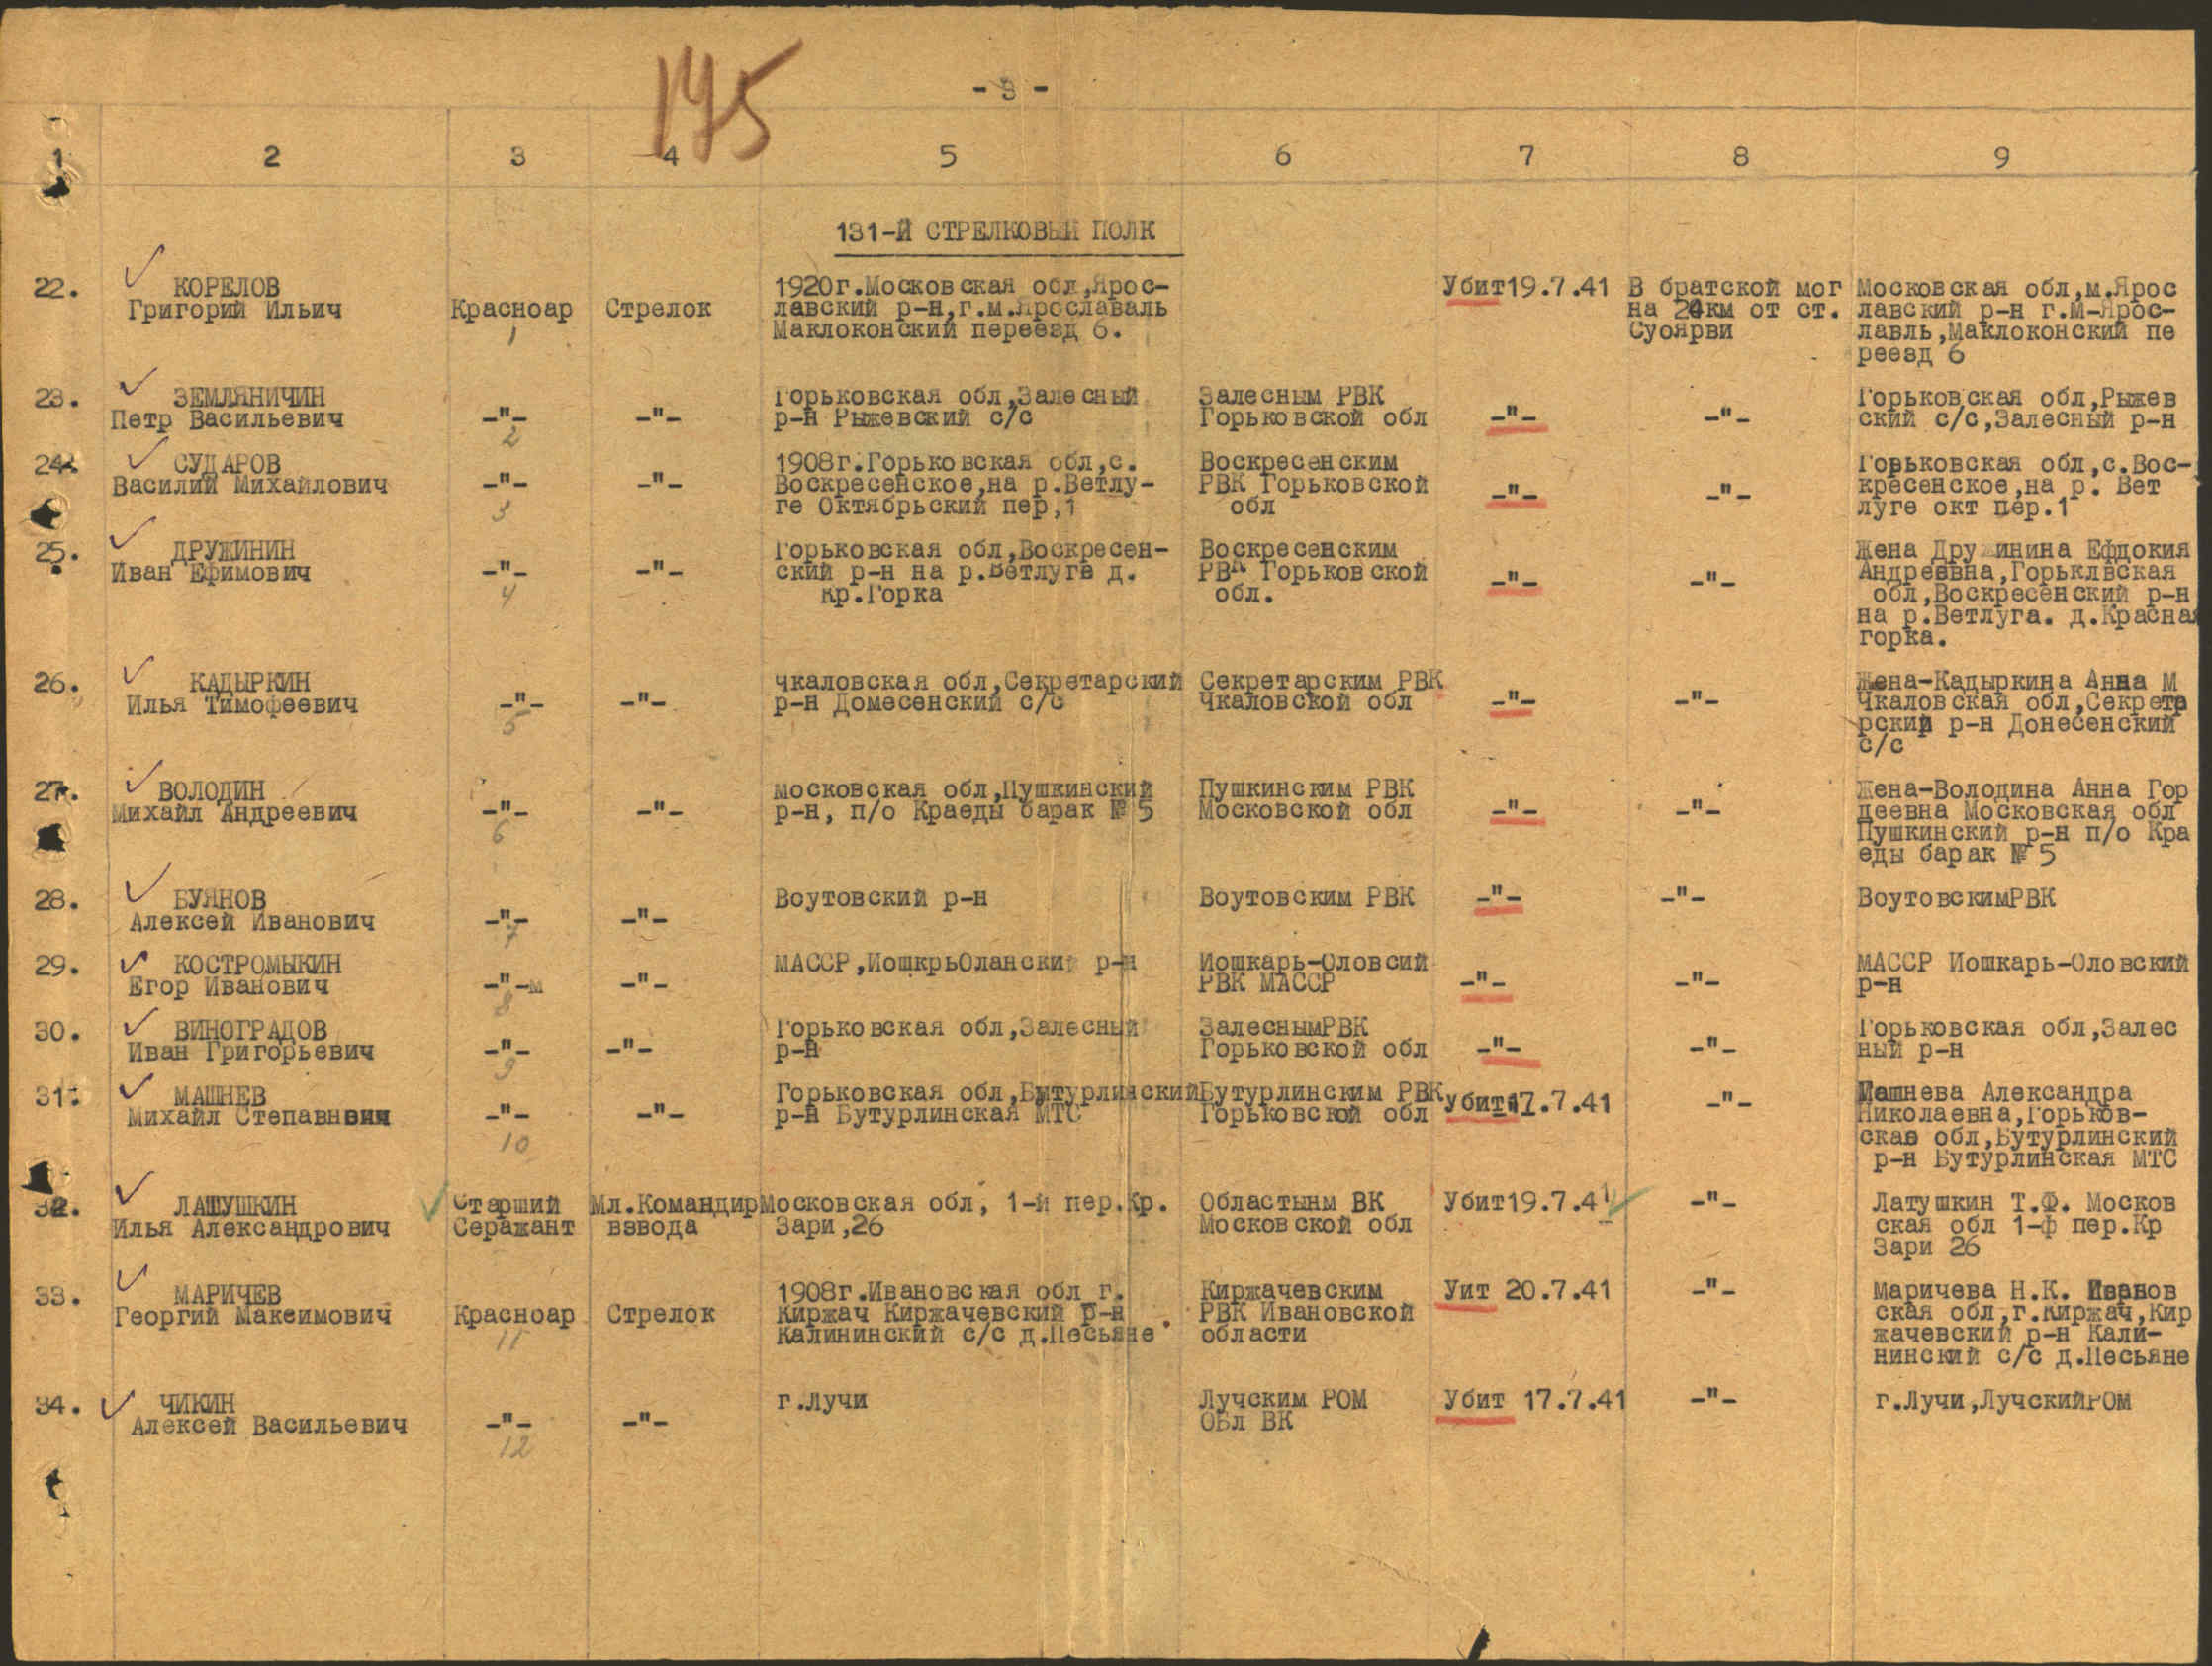 175
- 3 -
1 2 3 4 5 6 7 8 9
131-Й СТРЕЛКОВЫЙ ПОЛК
22. КОРЕЛОВ
Григорий Ильич
Красноар
1
Стрелок
1920г.Московская обл,Ярос-
лавский р-н,г.м.Ярославаль
Маклоконский переезд 6.
Убит19.7.41
В братской мог
на 20км от ст.
Суоярви
Московская обл,м.Ярос
лавский р-н г.М-Ярос-
лавль,Маклоконский пе
реезд 6
23. ЗЕМЛЯНИЧИН
Петр Васильевич
-"-
2
-"-
Горьковская обл,Залесный
р-н Рыжевский с/с
Залесным РВК
Горьковской обл
-"-
-"-
Горьковская обл,Рыжев
ский с/с,Залесный р-н
24. СУДАРОВ
Василий Михайлович
-"-
3
-"-
1908г.Горьковская обл,с.
Воскресенское,на р.Ветлу-
ге Октябрьский пер,1
Воскресенским
РВК Горьковской
обл
-"-
-"-
Горьковская обл,с.Вос-
кресенское,на р. Вет
луге окт пер.1
25. ДРУЖИНИН
Иван Ефимович
-"-
4
-"-
Горьковская обл,Воскресен-
ский р-н на р.Ветлуга д.
Кр.Горка
Воскресенским
РВК Горьковской
обл.
-"-
-"-
Жена Дружинина Ефдокия
Андреевна,Горьклвская
обл,Воскресенский р-н
на р.Ветлуга. д.Красная
горка.
26. КАДЫРКИН
Илья Тимофеевич
-"-
5
-"-
Чкаловская обл,Секретарский
р-н Домесенский с/с
Секретарским РВК
Чкаловской обл
-"-
-"-
Жена-Кадыркина Анна М
Чкаловская обл,Секрета
рский р-н Донесенский
с/с
27. ВОЛОДИН
Михаил Андреевич
-"-
6
-"-
Московская обл,Пушкинский
р-н, п/о Краеды барак № 5
Пушкинским РВК
Московской обл
-"-
-"-
Жена-Володина Анна Гор
деевна Московская обл
Пушкинский р-н п/о Кра
еды барак № 5
28. БУЯНОВ
Алексей Иванович
-"-
7
-"-
Воутовский р-н
Воутовским РВК
-"-
-"-
ВоутовскимРВК
29. КОСТРОМЫКИН
Егор Иванович
-"-м
8
-"-
МАССР,ИошкрьОлански р-н
Иошкарь-Оловсий
РВК МАССР
-"-
-"-
МАССР Иошкарь-Оловский
р-н
30. ВИНОГРАДОВ
Иван Григорьевич
-"-
9
-"-
Горьковская обл,Залесный
р-н
ЗалеснымРВК
Горьковской обл
-"-
-"-
Горьковская обл,Залес
ный р-н
31. МАШНЕВ
Михаил
-"-
10
-"-
Горьковская обл,Бутурлинский
р-н Бутурлинская МТС
Бутурлинским РВК
Горьковской обл
Убит17.7.41
-"-
Машнева Александра
Николаевна,Горьков-
ская обл,Бутурлинский
р-н Бутурлинская МТС
32. ЛАШУШКИН
Илья Александрович
Старший
Серажант
Мл.Командир
взвода
Московская обл, 1-й пер.Кр.
Зари,26
Областынм ВК
Московской обл
Убит19.7.41
-"-
Латушкин Т.Ф. Москов
ская обл 1-ф пер.Кр
Зари 26
33. МАРИЧЕВ
Георгий Максимович
Красноар
11
Стрелок
1908г.Ивановская обл г.
Киржач Киржачевский р-н
Калининский с/с д.Песьяне
Киржачевским
РВК Ивановской
области
Уит 20.7.41
-"-
Маричева Н.К. Иванов
ская обл,г.Киржач,Кир
жачевский р-н Кали-
нинский с/с д.Песьяне
34. ЧИКИН
Алексей Васильевич
-"-
12
-"-
г.Лучи
Лучским РОМ
ОБл ВК
Убит 17.7.41
-"-
г.Лучи,ЛучскийРОМ